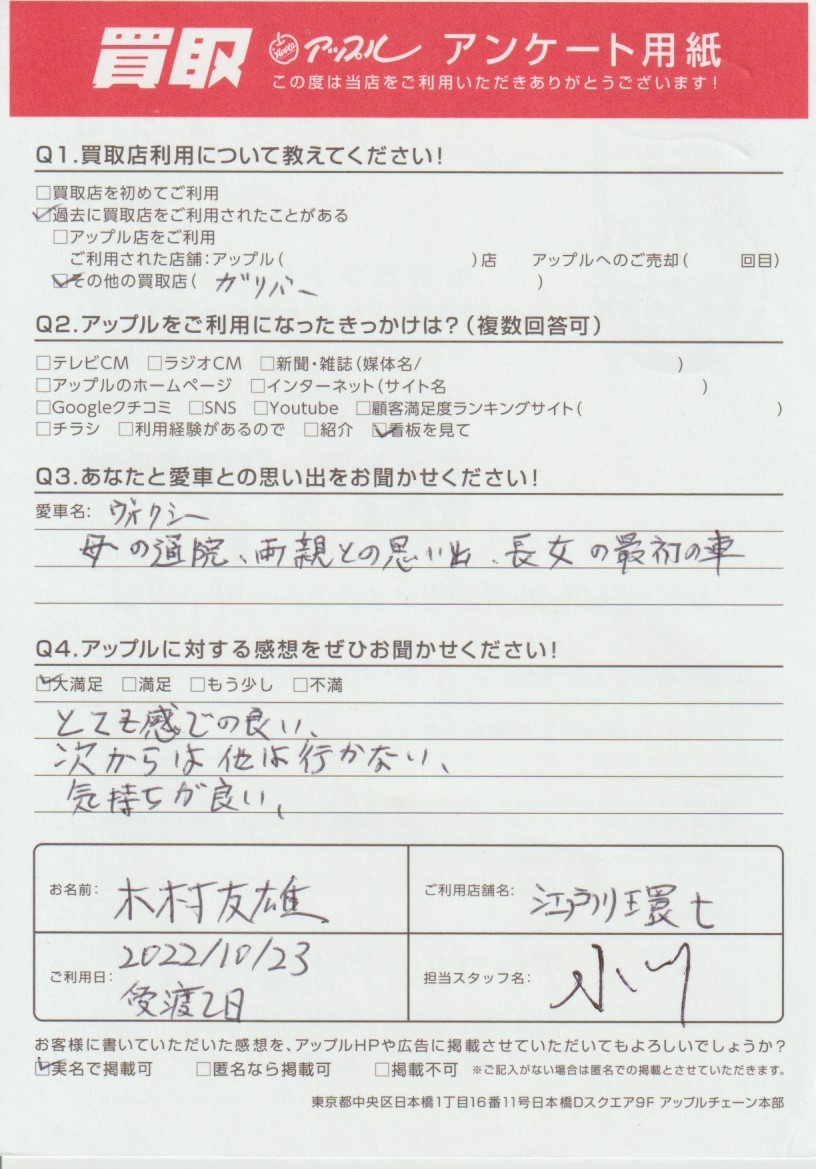 買取 アップル アンケート用紙
この度は当店をご利用いただきありがとうございます!
Q1.買取店利用について教えてください!
□買取店を初めてご利用
☑過去に買取店をご利用されたことがある
□アップル店をご利用
ご利用された店舗:アップル( )店 アップルへのご売却( 回目)
☑その他の買取店( ガリバー )
Q2.アップルをご利用になったきっかけは?(複数回答可)
□テレビCM □ラジオCM □新聞・雑誌(媒体名/ )
□アップルのホームページ □インターネット(サイト名 )
□Googleクチコミ □SNS □Youtube □顧客満足度ランキングサイト( )
□チラシ □利用経験があるので □紹介 ☑看板を見て
Q3.あなたと愛車との思い出をお聞かせください!
愛車名: ヴォクシー
母の通院、両親との思い出、長女の最初の車
Q4.アップルに対する感想をぜひお聞かせください!
☑大満足 □満足 □もう少し □不満
とても感じの良い、
次からは他は行かない、
気持ちが良い、
お名前: 木村友雄
ご利用店舗名: 江戸川環七
ご利用日: 2022/10/23
受渡し日
担当スタッフ名: 小川
お客様に書いていただいた感想を、アップルHPや広告に掲載させていただいてもよろしいでしょうか?
☑実名で掲載可 □匿名なら掲載可 □掲載不可 ※ご記入がない場合は匿名での掲載とさせていただきます。
東京都中央区日本橋1丁目16番11号日本橋Dスクエア9F アップルチェーン本部